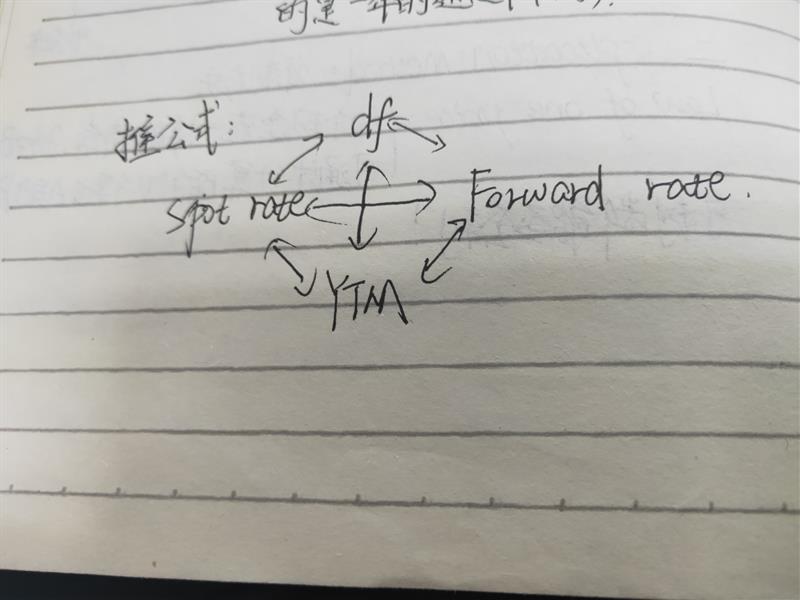 推公式:
df
spot rate
Forward rate.
YTM